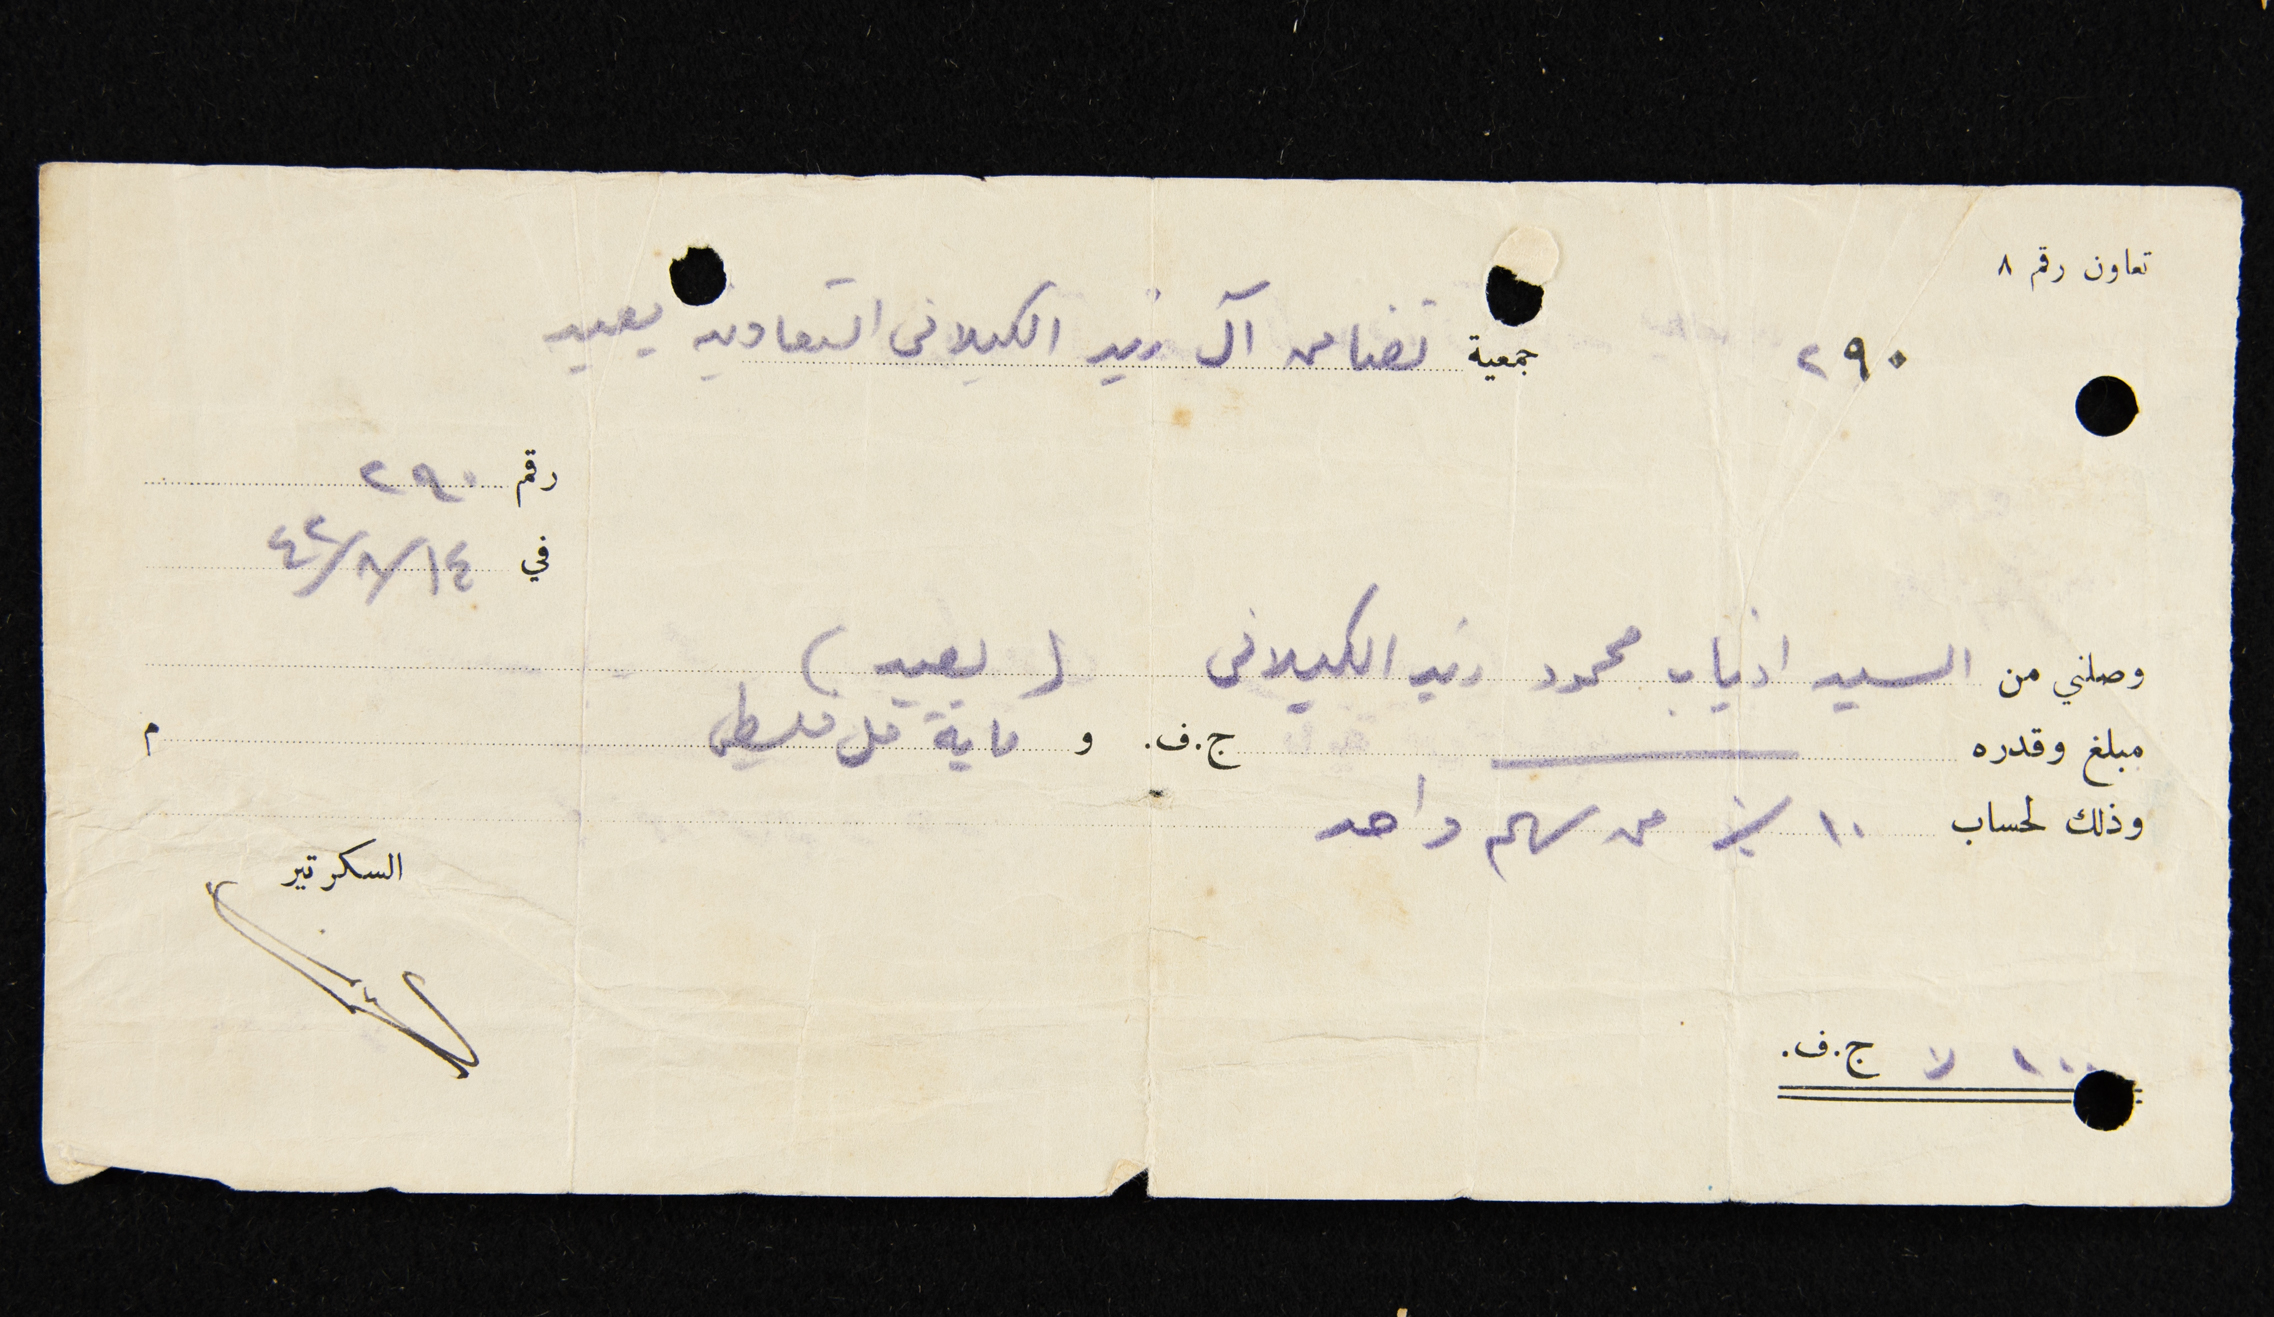 تعاون رقم ٨
٢٩٠
جمعية تضامن آل زيد الكيلاني التعاونية يعبد
رقم ٢٩٠
في ١٤/٨/٤٢
وصلني من السيد اذياب محمود زيد الكيلاني (يعبد)
مبلغ وقدره ج.ف. و ماية مل فلسطيني م
وذلك لحساب ١٠٪ من سهم واحد
السكرتير
١٠٠ ج.ف.